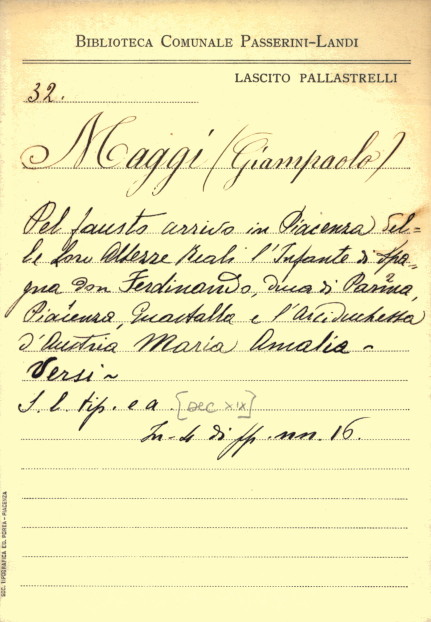 BIBLIOTECA COMUNALE PASSERINI-LANDI
LASCITO PALLASTRELLI
32.
Maggi (Giampaolo)
Pel fausto arrivo in Piacenza del=
le Loro Altezze Reali l'Infante di Spa=
gna don Ferdinando, duca di Parma,
Piacenza, Guastalla e l'Arciduchessa
d'Austria Maria Amalia ~
Versi ~
S. l. tip. e a. [SEC XIX]
In-4 di pp. nn. 16.
SOC. TIPOGRAFICA ED. PORTA - PIACENZA